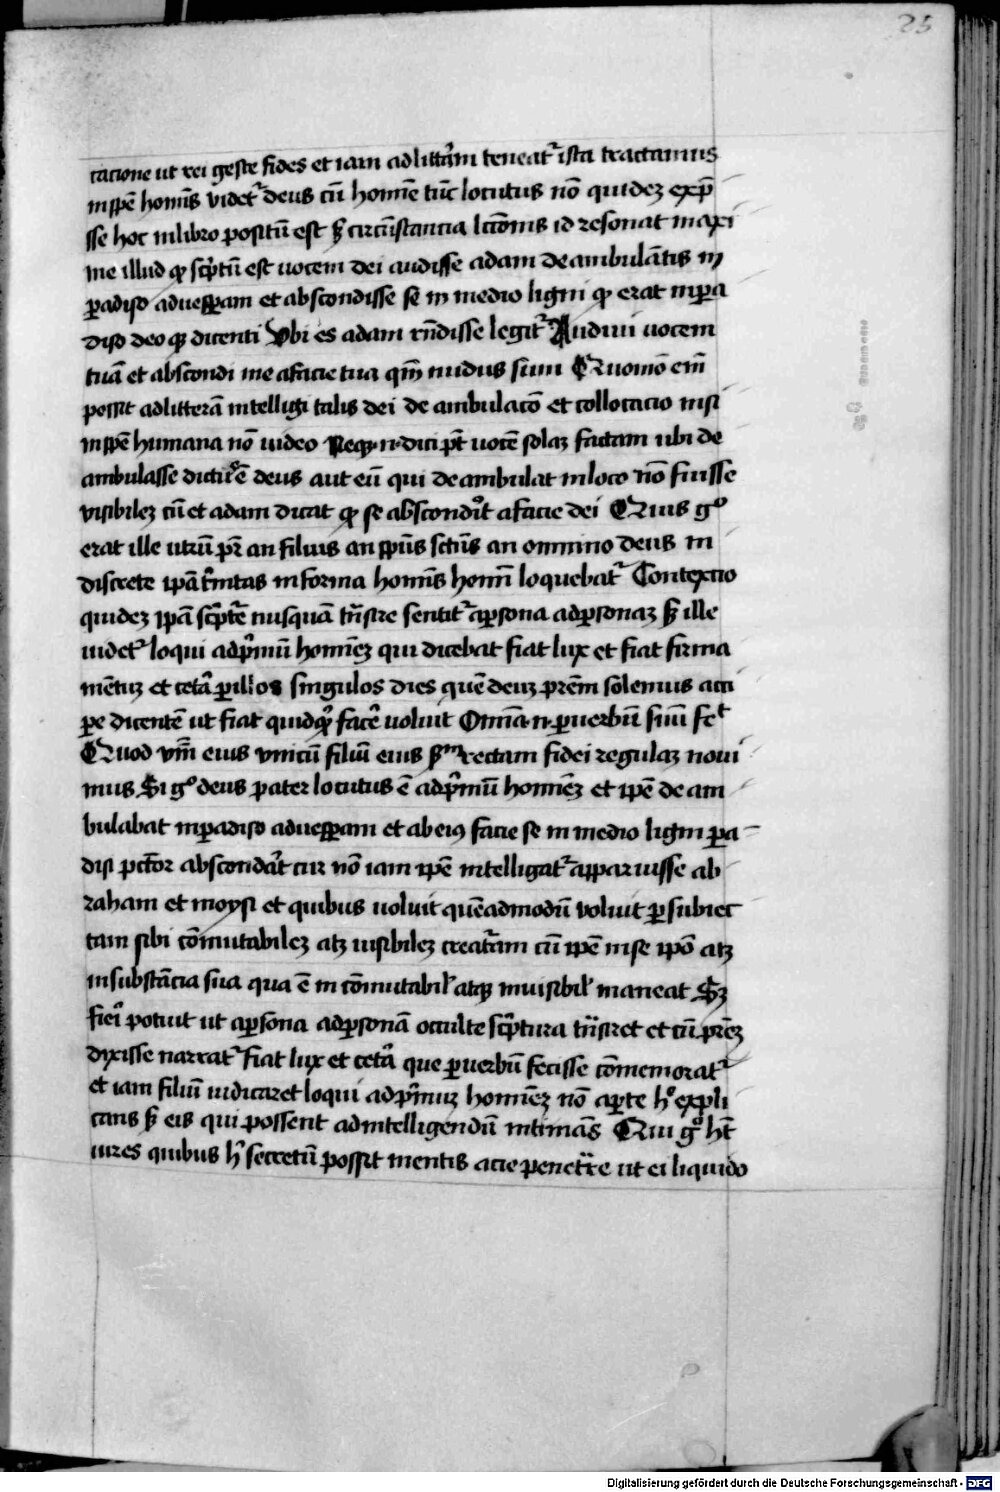 25
tacione ut rei geste fides et iam ad litterā teneat᷑ ista tractamus
in spē homīs videt᷑ deus cū homīe tūc locutus nō quidez exp̄
sse hoc in libro positū est s̄ circūstancia lc̄cionis id resonat maxi
me illud qꝫ sc̄ptū est uocem dei audisse adam deambulātis in
ꝑadiso ad uesꝑam et abscondisse se in medio ligni qꝫ erat in ꝑa
diso deo qꝫ dicenti Vbi es adam rn̄disse legit᷑ Audiui uocem
tuā et abscondi me a facie tua qm̄ nudus sum Quomō em̄
possit ad litterā intelligi talis dei de ambulacō et collocacio nisi
in spē humana nō uideo Neqꝫ .n. dici pt̄ uocē solaz factam ubi de
ambulasse dictꝰ ē deus aut eū qui deambulat in loco nō fuisse
visibilez cū et adam dicat qꝫ se abscondit a facie dei Quis gͦ
erat ille utrū pr̄ an filius an spūs sctūs an omnino deus in
discrete ipā t̄nitas in forma homīs homī loquebat᷑ Contextio
quidez ipā sc̄pt̄e nusquā t̄nsire sentit᷑ a ꝑsona ad ꝑsonaz s̄ ille
uidet᷑ loqui ad pͥmū homīez qui dicebat fiat lux et fiat firma
mētuz et cetā ꝑ illos singulos dies quē deuz prēm solemus acci
ꝑe dicentē ut fiat quidqͥd facē uoluit Omīa .n. ꝑ uerbū suū fet
Quod vm̄ eius vnicū filiū eius sm̄ rectam fidei regulaz noui
mus Si gͦ deus pater locutus ē ad pͥmū homīez et ipē de am
bulabat in ꝑadiso ad uesꝑam et ab eiꝰ facie se in medio ligni ꝑa
disi pctor abscondāt cur nō iam ipē intelligat᷑ apparuisse ab
raham et moysi et quibus uoluit quēadmodū voluit ꝑ subiec
tam sibi cōmutabilez atꝫ uisibilez creaturam cū ipē in se ipō atꝫ
in substācia sua qua ē in cōmutabil̕ atqꝫ inuisibil̕ maneat Sꝫ
fieri potuit ut a ꝑsona ad ꝑsonā occulte sc̄ptura t̄nsiret et cū prēz
dixisse narrat᷑ fiat lux et cetā que ꝑ uerbū fecisse cōmemorat᷑
et iam filiū iudicaret loqui ad pͥmuz homīez nō aꝑte hͦ expli
cans s̄ eis qui possent ad intelligendū intimās Qui gͦ ht̄
uires quibus hͦ secretū possit mentis acie penetr̄e ut ei liquido
Digitalisierung gefördert durch die Deutsche Forschungsgemeinschaft - DFG